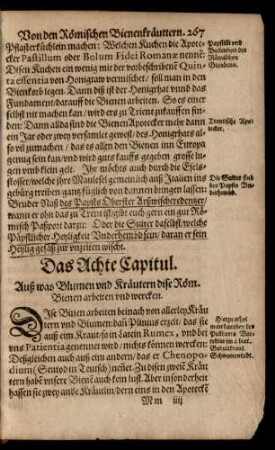 Von den Römischen Bienenkräuttern. 267
Pflasterküchlein machen: Welchen Kuchen die Apote-
cker Pastillum oder Bolum Fidei Romanæ nennẽ
Disen Kuchen ein wenig mit der vorbeschribenẽ Quin-
ta essentia von Honigtaw vermischet/ soll man in den
Bienkorb legen. Dann diß ist der Honigthat vnnd das
Fundament/ darauff die Bienen arbeiten. So es einer
selbst nit machen kan/ wird ers zu Trient zukauffen fin-
den: Dann allda find die Bienen Apotecker nach dem
ein Jar oder zwey versamlet gewest/ des Honigthats al-
so vil zumachen/ das es allen den Bienen inn Europa
genug sein kan/ vnd wird guts kauffs gegeben grosse
gen vmb klein gelt. Ihr möchts auch durch die Esels-
fösser/ welche jhre Maulesel gemeinlich auß Italien ins
gebürg treiben gantz füglich von dannen bringen lassen:
Bruder Naß des Papsts Oberster
wann er ohn das zu Trent ist/ gibt euch gern ein gut Rö-
misch Paßport darzu: Oder die Stüter daselbst/ welche
Päpstlicher Heyligkeit Vnderheimid sein/ daran er sein
Heylig gesäß zur vnzeiten wischt.
Das Achte Capitul.
Auß was Blumen vnd Kräutern dise Röm.
Bienen arbeiten vnd wercken.
Dise Bienen arbeiten beinach von allerley Kräu-
tern vnd Blumen: dañ Plinius erzelt/ das sie
auß eim Kraut/ so in Latein Rumex, vnd bei
vns Patientia genennet wird/ nichts können wercken:
Deßgleichen auch auß eim andern/ das er Chenopo-
dium (Sentod in Teutsch) neñet. Zu disen zweiẽ Kräu-
tern habẽ vnsere Bienẽ auch kein lust. Aber insonderheit
hassen sie zwey andre Kräutlin/ dern eins in den Apoteckẽ
M m iiij
Papstisll vnd
Römischen
Trentische Apo-
tecker.
Die Stüter sind
des Papsts Vn-
derheimid.